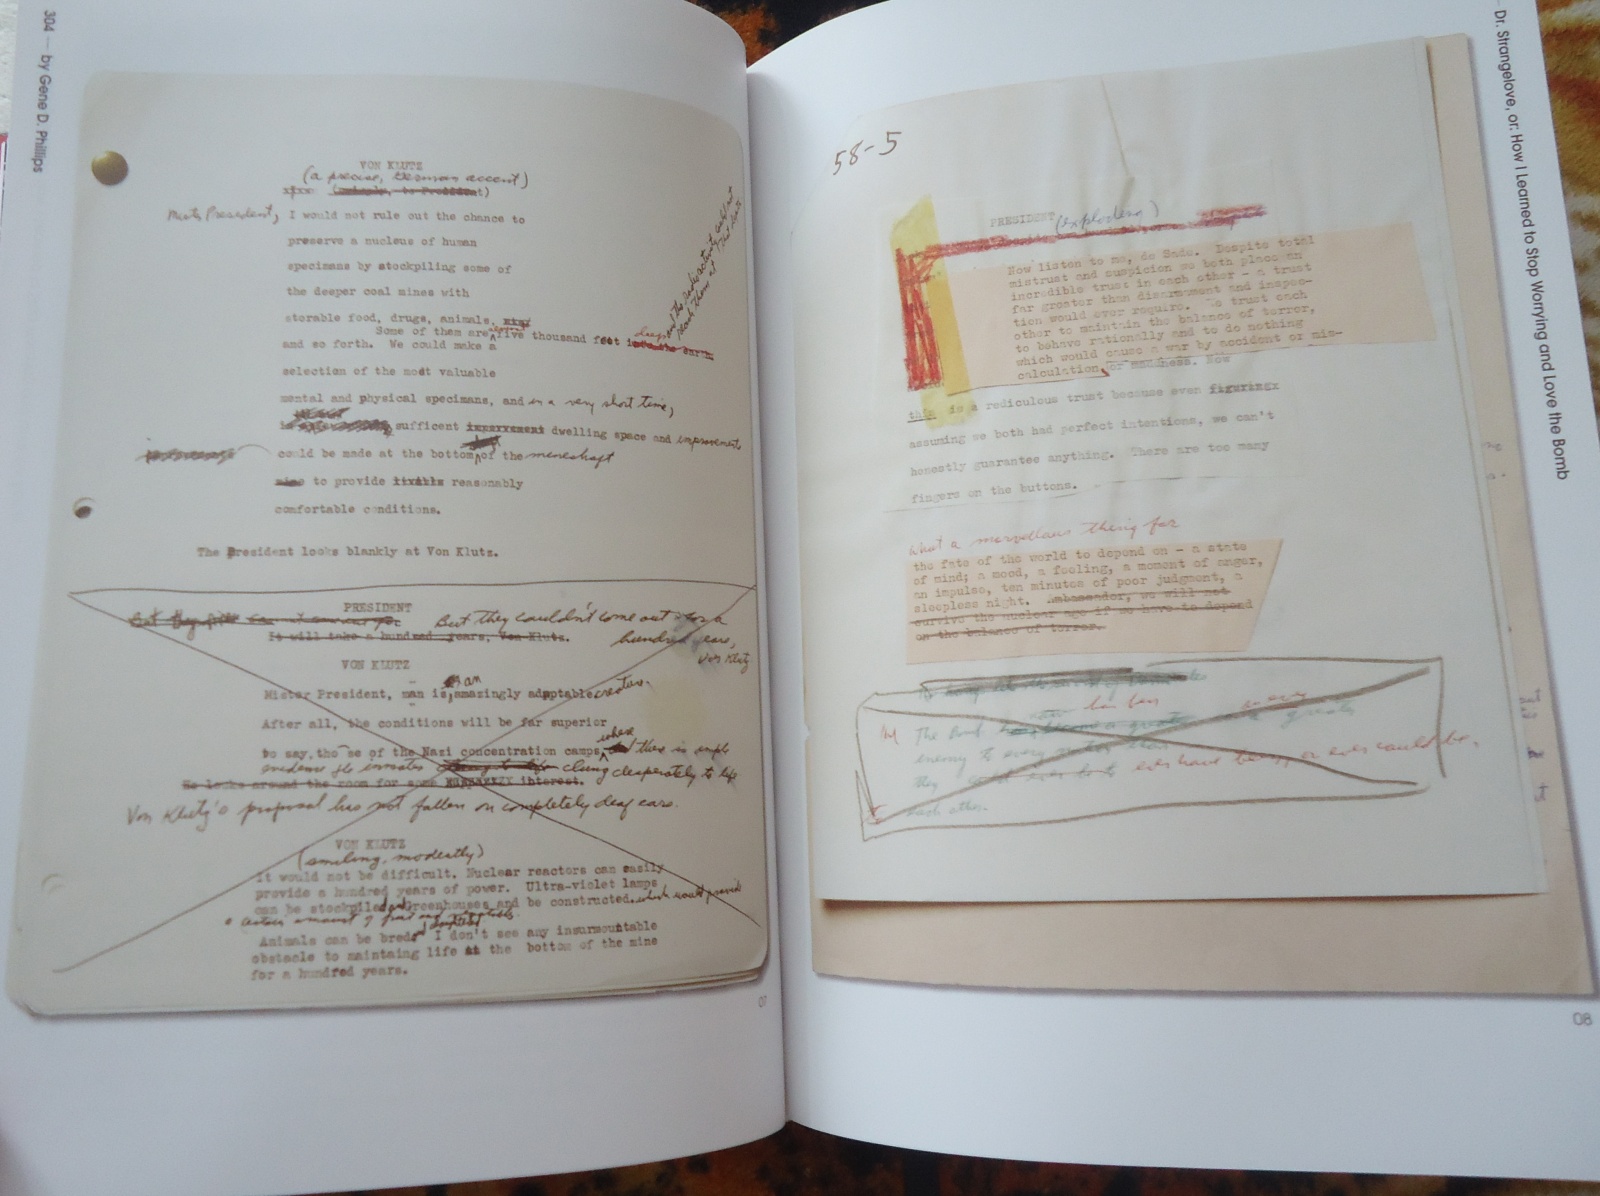 304 — by Gene D. Phillips
VON KLUTZ
(a precise, German accent)
Mister President, I would not rule out the chance to
preserve a nucleus of human
specimens by stockpiling some of
the deeper coal mines with
storable food, drugs, animals,
Some of them are five thousand feet deep into the earth.
and the radioactivity would not
reach them at
and so forth. We could make a
selection of the most valuable
mental and physical specimens, and in a very short time,
sufficent dwelling space and improvement
could be made at the bottom of the mineshaft
mine to provide livable reasonably
comfortable conditions.
The President looks blankly at Von Klutz.
PRESIDENT
But they couldn't come out for a
It will take a hundred years, Von Klutz. hundred years,
Von Klutz
VON KLUTZ
an
Mister President, man is amazingly adaptable creature.
After all, the conditions will be far superior
where
to say, those of the Nazi concentration camps, and there is ample
evidence the inmates clung to life clung desperately to life
He looks around the room for some interest.
Von Klutz's proposal has not fallen on completely deaf ears.
VON KLUTZ
(smiling, modestly)
It would not be difficult. Nuclear reactors can easily
provide a hundred years of power. Ultra-violet lamps
can be stockpiled and Greenhouses and be constructed. which would provide
a certain amount of fruit and vegetables.
Animals can be breds I don't see any insurmountable
obstacle to maintaing life at the bottom of the mine
for a hundred years.
07
Dr. Strangelove, or: How I Learned to Stop Worrying and Love the Bomb
58-5
PRESIDENT (exploding)
Now listen to me, de Sade. Despite total
mistrust and suspicion we both place an
incredible trust in each other - a trust
far greater than disarmament and inspec-
tion would ever require. To trust each
other to maintain the balance of terror,
to behave rationally and to do nothing
which would cause a war by accident or mis-
calculation or madness. Now
this is a rediculous trust because even figuringx
assuming we both had perfect intentions, we can't
honestly guarantee anything. There are too many
fingers on the buttons.
What a marvellous thing for
the fate of the world to depend on - a state
of mind; a mood, a feeling, a moment of anger,
an impulse, ten minutes of poor judgment, a
sleepless night. Ambassador, we will not
survive the nuclear age if we have to depend
on the balance of terror.
now has been an every
The Bomb become a greater greater
enemy to every nation than
they could ever be to ever have being, or ever could be,
each other.
08